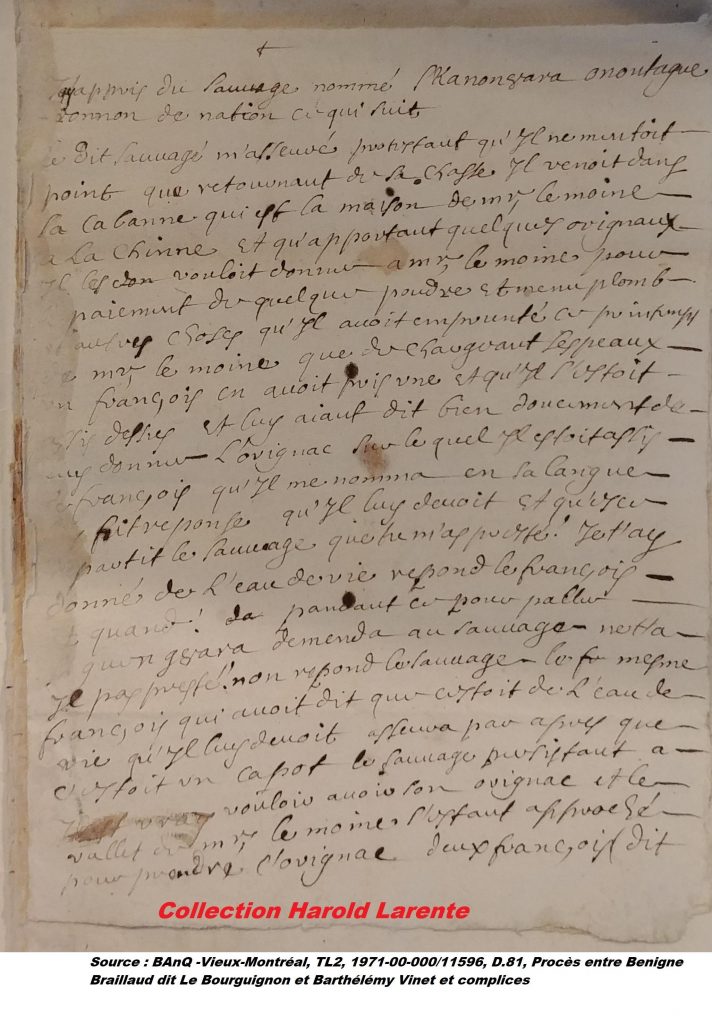 +
J'ay appris du sauvage nommé Skanongara onontague
ronnon de nation ce qui suit
le dit sauvage m'asseuré protestant qu'Il ne mentoit
point que retournant de sa chasse Il venoit dans
la cabanne qui est la maison de mr le moine
a La chinne Et qu'apportant quelques orignaux
Il les vouloit donner a mr le moine pour
paiement de quelque poudre Et menu plomb
autres choses qu'Il avoit emprunté ce printemps
de mr le moine que dechargeant Les peaux
un françois en avoit pris une et qu'Il s'estoit
assis dessus Et luy aiant dit bien doucement de
luy donner L'orignac sur lequel Il estoit assis
le françois qu'Il me nomma en sa langue
fit reponse qu'Il luy devoit Et
partit le sauvage que tu m'as presté! Je t'ay
donné de L'eau de vie repond le françois
Et quand! pandant ce pour
gara demenda au sauvage ne t'a
Il pas presté! non repond le sauvage le mesme
françois qui avoit dit que c'estoit de L'eau de
vie qu'Il luy devoit asseura par apres que
c'estoit un capot le sauvage persistant a
vouloir avoir son orignac et le
vallet de mr le moine s'estant approché
pour prendre l'orignac deux françois dit
Collection Harold Larente
Source : BAnQ -Vieux-Montréal, TL2, 1971-00-000/11596, D.81, Procès entre Benigne
Braillaud dit Le Bourguignon et Barthélémy Vinet et complices